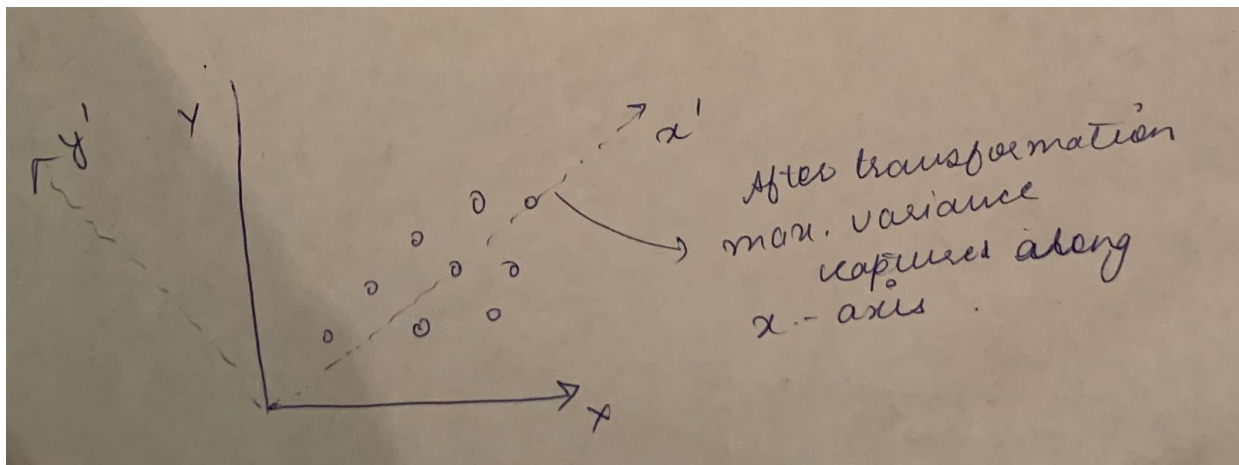 y'
Y
x'
After transformation
max. variance
captures along
x - axis.
X